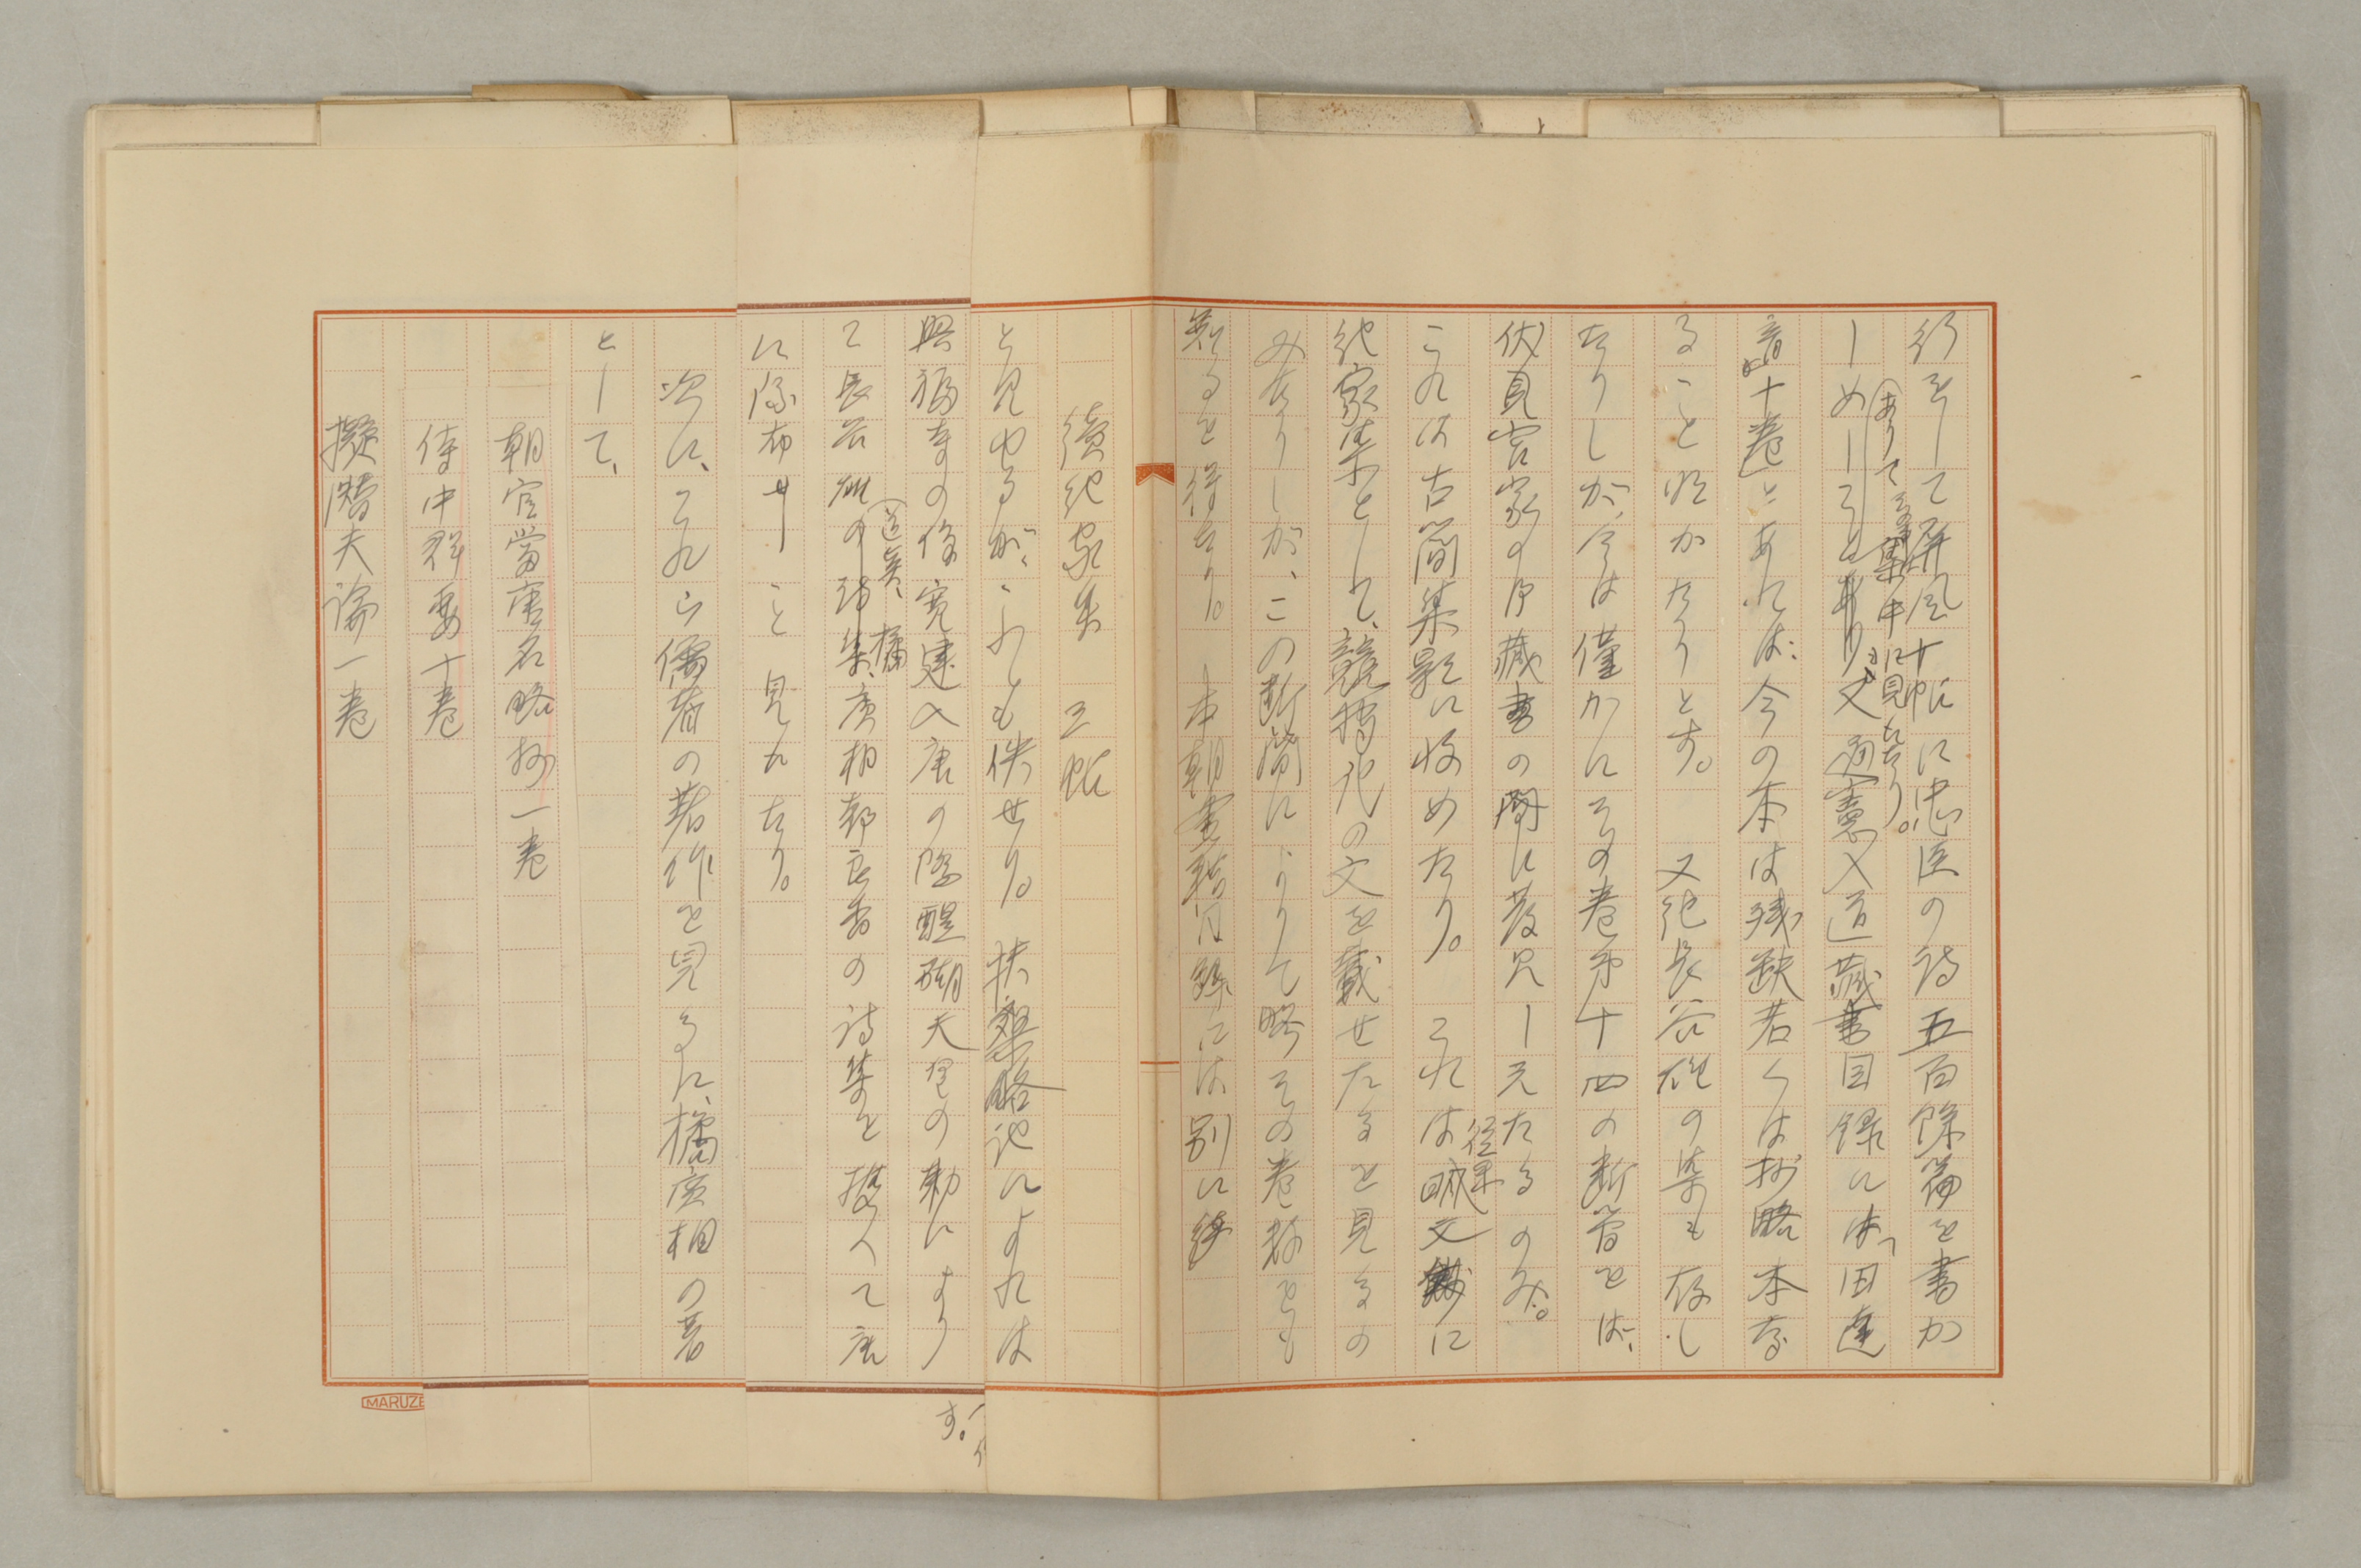 行をして屏風十帖に忠臣の詩五百餘篇を書か
しめしことあり又通憲入道藏書目録には「田達
ありて集中に見えたり。
音十卷」とあれば、今の本は殘缺若くは抄略本な
ることは明かなりとす。 又紀長谷雄の集も存し
たりしが、今は僅かにその卷第十四の断簡をば、
伏見宮家の御藏書の間に發見し元たるのみ。
これは古簡集影に收めたり。 これは从來朝文鈔に
紀家集として、競狩記の文を載せたるを見るの
みなりしが、この断簡によりて略その卷數をも
知るを得たり。 本朝書籍目録には別に続
續紀家集 三帖
と見ゆるが、これも佚せり。 扶桑略記によれは
興福寺の僧寛建入唐の際醍醐天皇の勅により
て長谷雄の詩集、廣相都良香の詩集を携へて唐
道眞、橘
に流布せしこと見えたり。
次に、これら儒者の著作を見るに、橘廣相の著
として、
朝官當唐名略抄一卷
侍中群要十卷
擬潛夫論一卷
す。
MARUZE